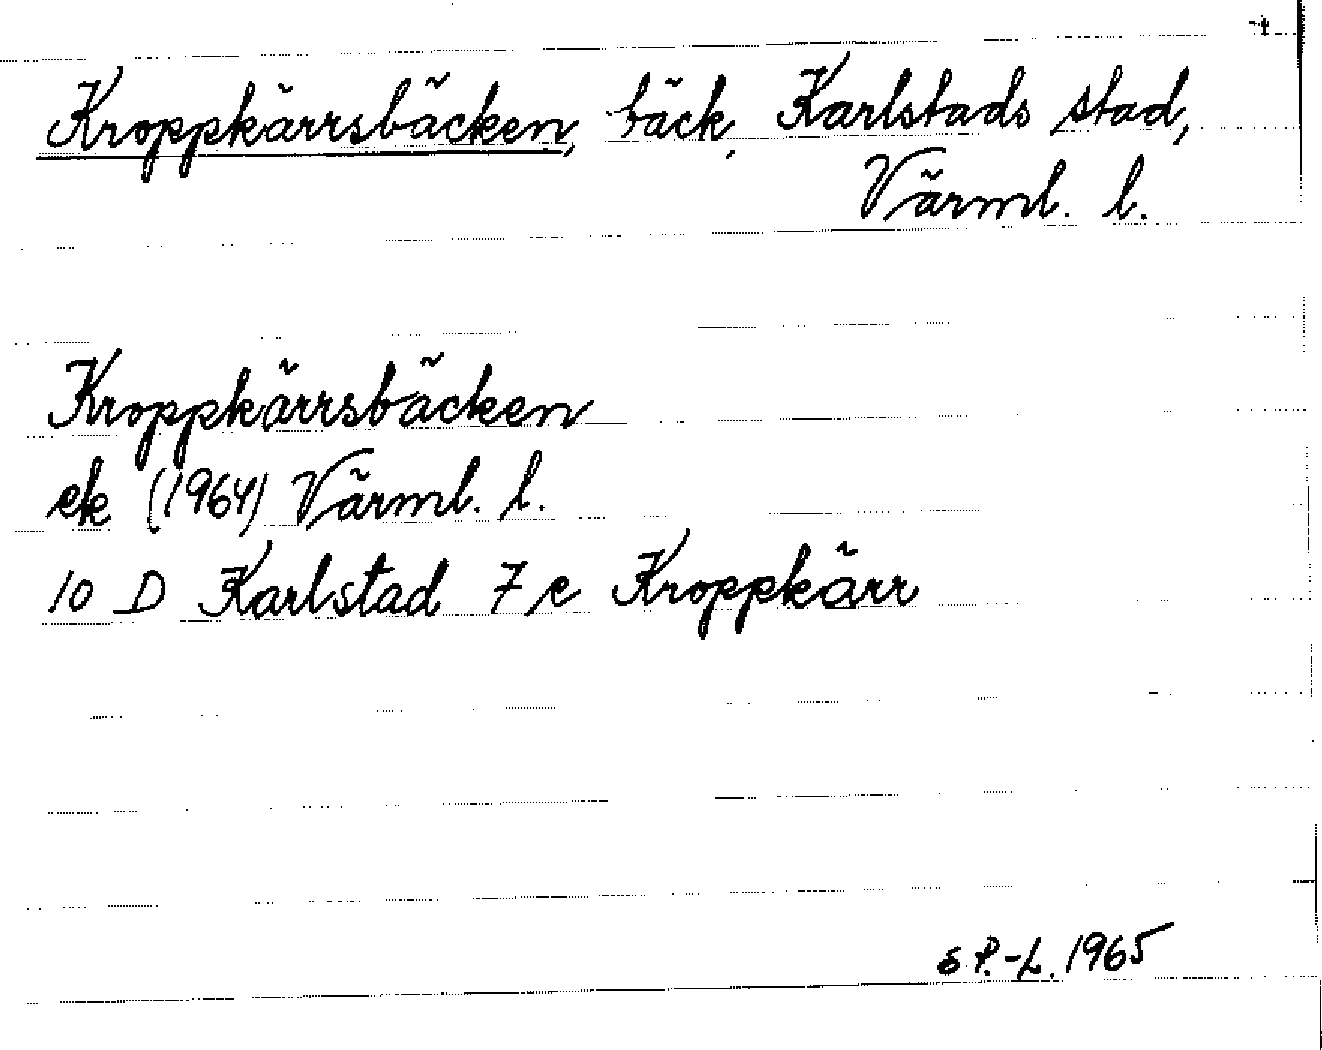 Kroppkärrsbäcken, bäck, Karlstads stad,
Värml. l.
Kroppkärrsbäcken
ek (1964) Värml. l.
10 D Karlstad 7 e Kroppkärr
S P.-L. 1965